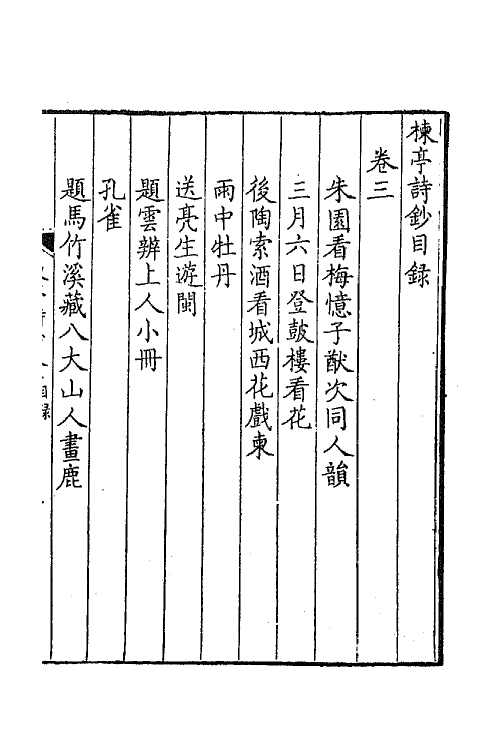 楝亭詩鈔目録
卷三
朱園看梅憶子猷次同人韻
三月六日登鼓樓看花
後陶索酒看城西花戲柬
雨中牡丹
送亮生遊閩
題雲辦上人小冊
孔雀
題馬竹溪藏八大山人畫鹿
目録